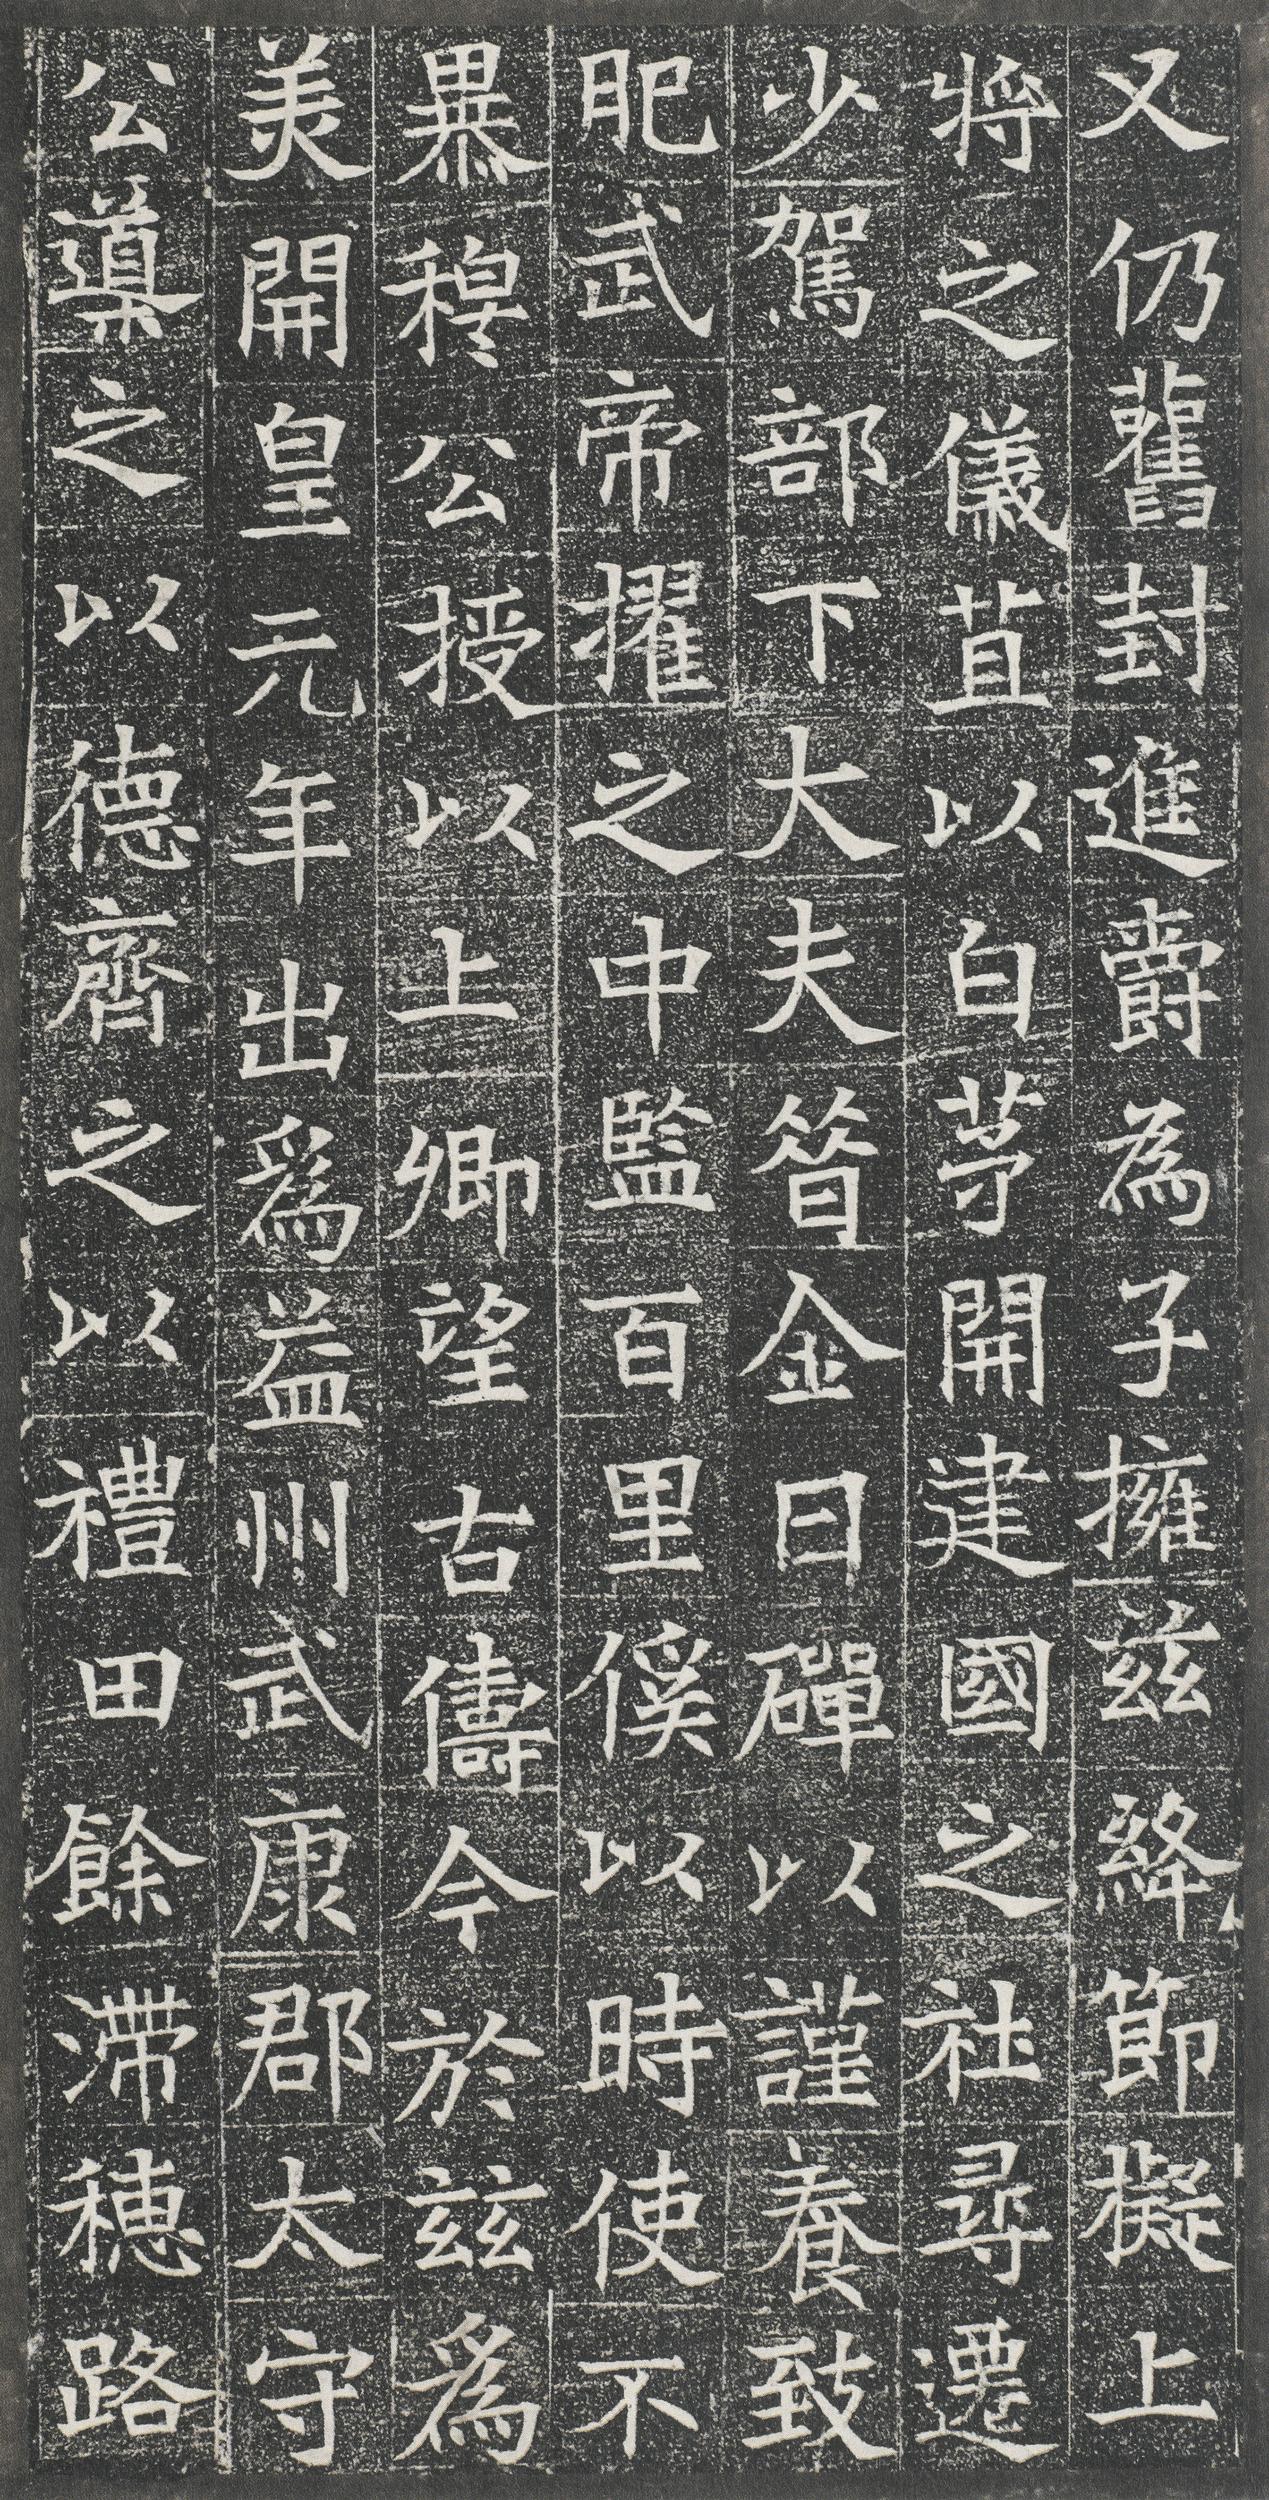 又仍舊封進爵為子擁茲絳節擬上
將之儀苴以白茅開建國之社尋遷
少駕部下大夫晉金日磾以謹養致
肥武帝擢之中監百里傒以時使不
暴穆公授以上卿望古儔今於茲為
美開皇元年出為益州武康郡太守
公導之以德齊之以禮田餘滯穗路